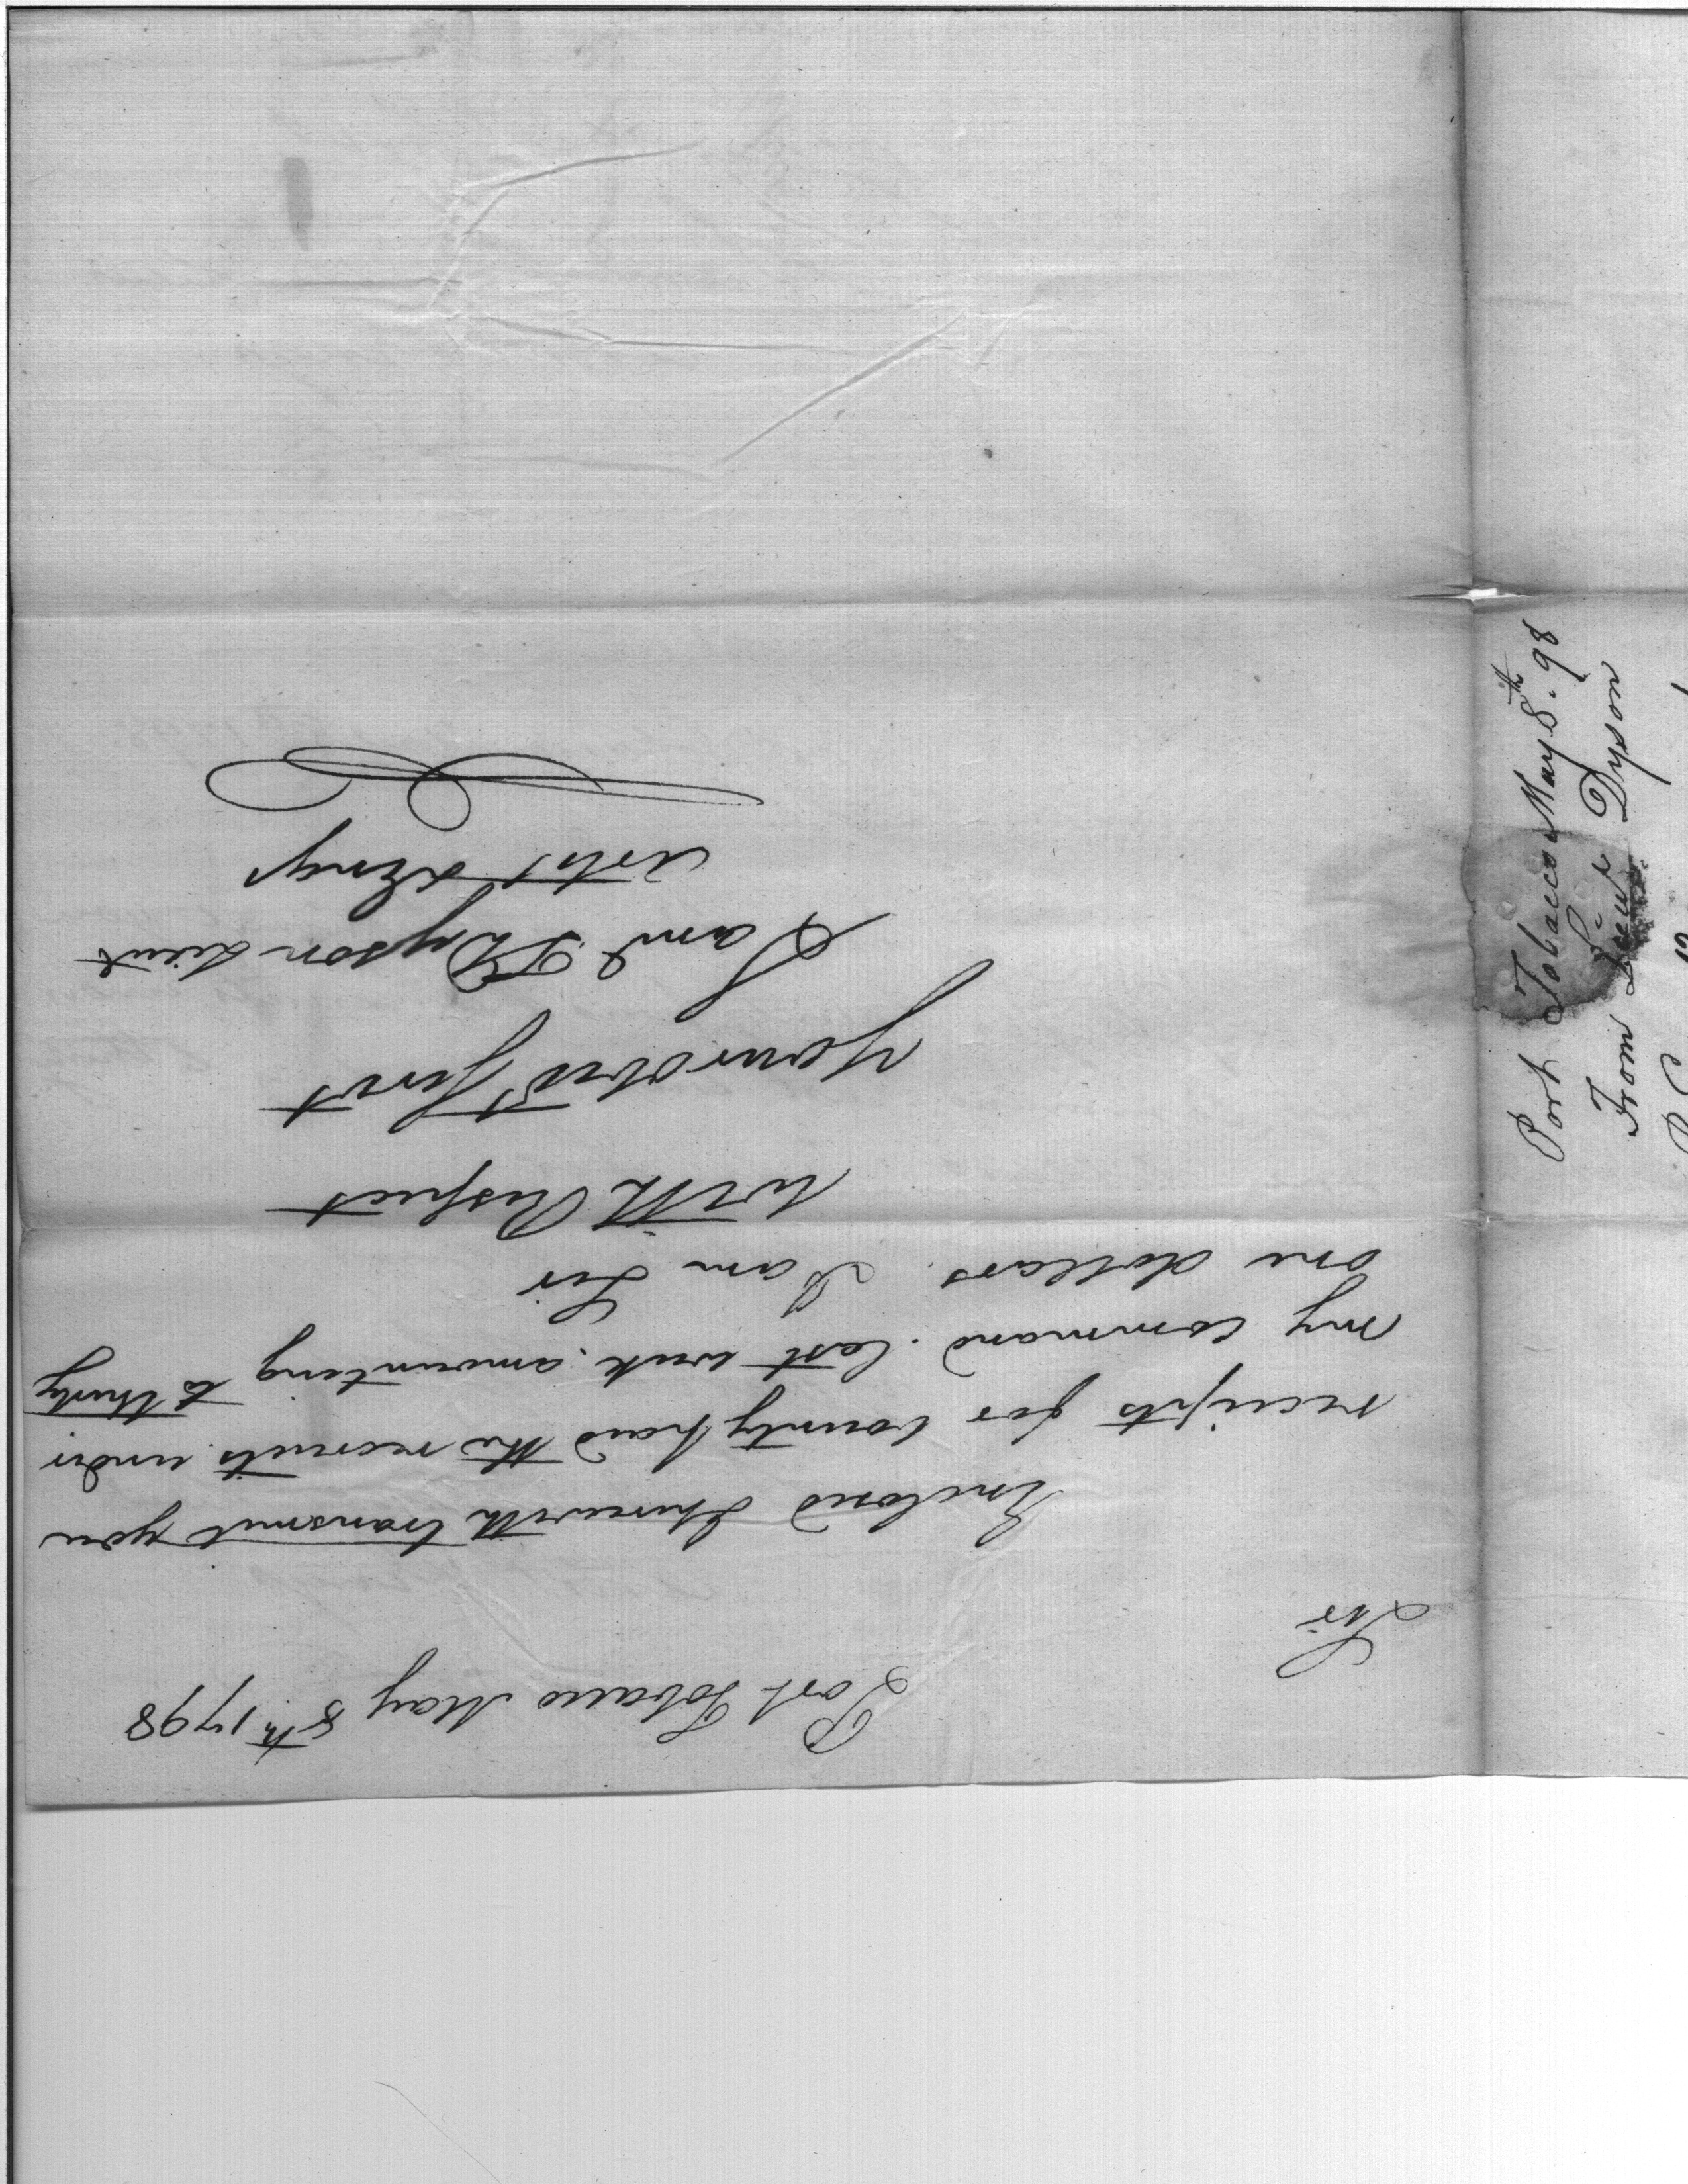 Port Tobacco May 8th 1798
Sir
Enclosed I herewith transmit you
receipts for bounty paid the recruits under
my command. last week. amounting to thirty
one dollars. I am Sir
with Respect
Your obed Servt
Saml T Dyson Lieut
Arts & Engrs
Port Tobacco May 8th. 98
From Lieut Dyson